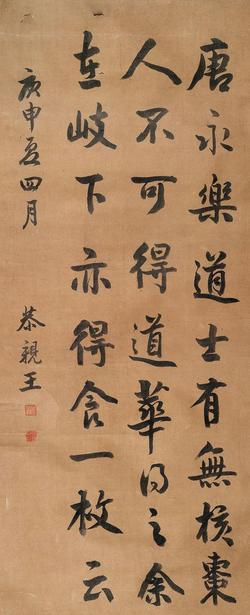 唐永樂道士有無核棗
人不可得道華得之余
在岐下亦得食一枚云
庚申夏四月
恭親王